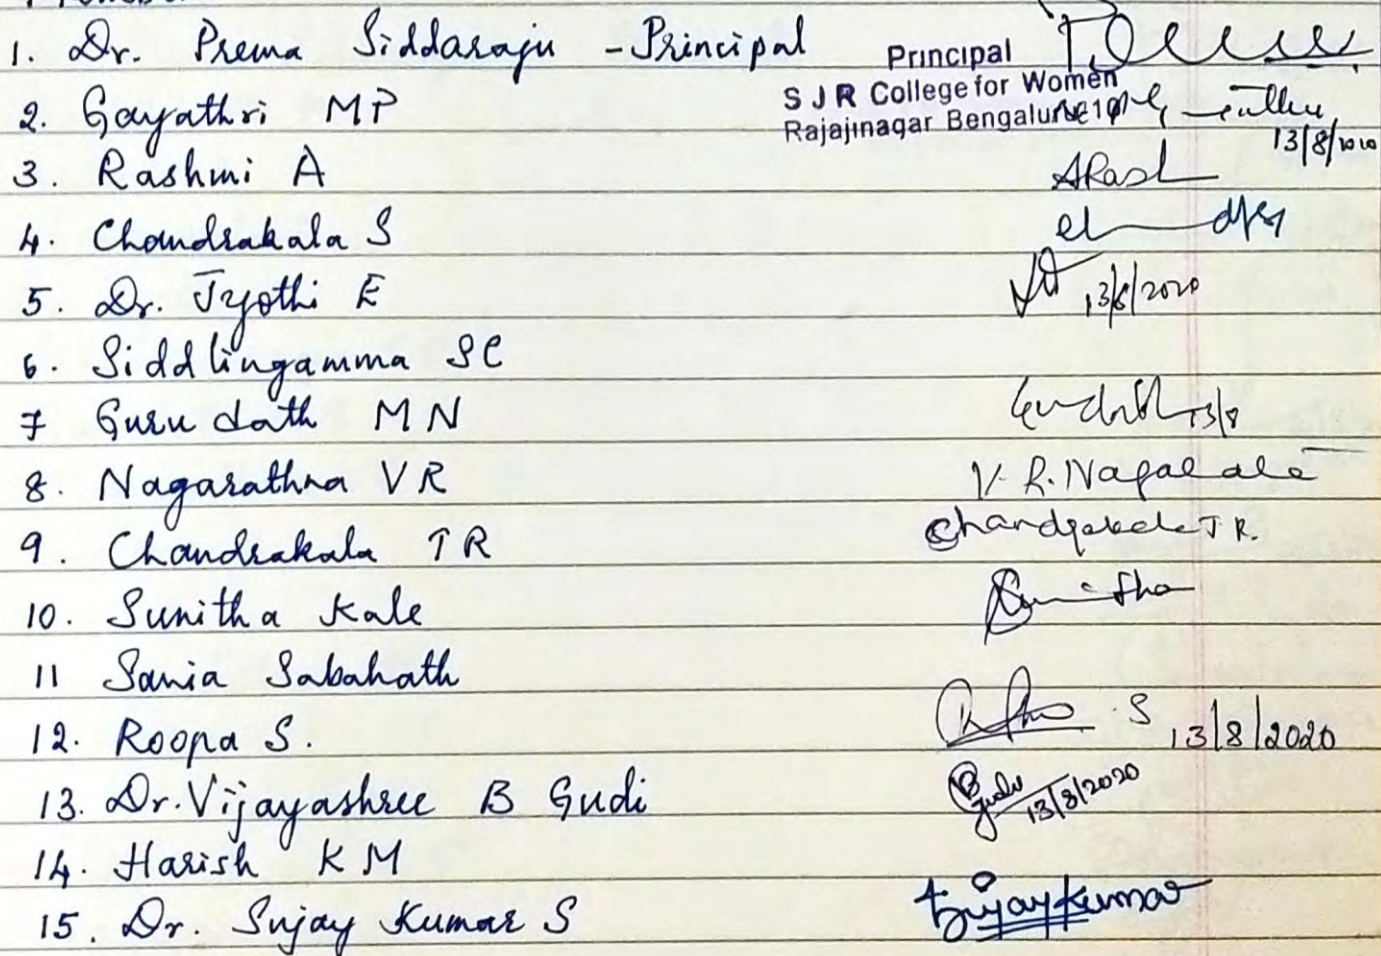 1. Dr. Prema Siddaraju - Principal
Principal
S J R College for Women
Rajajinagar Bengaluru
2. Gayathri MP
13/8/2020
3. Rashmi A
ARash
4. Chandrakala S
5. Dr. Jyothi E
13/8/2020
6. Siddlingamma SC
7 Guru dath MN
13/8
8. Nagarathna VR
V. R. Nagarathna
9. Chandrakala TR
Chandrakala T R.
10. Sunitha Kale
Sunitha
11 Sania Sabahath
12. Roopa S.
S 13/8/2020
13. Dr. Vijayashree B Gudi
B Gudi 13/8/2020
14. Harish KM
15. Dr. Sujay Kumar S
Sujaykumar